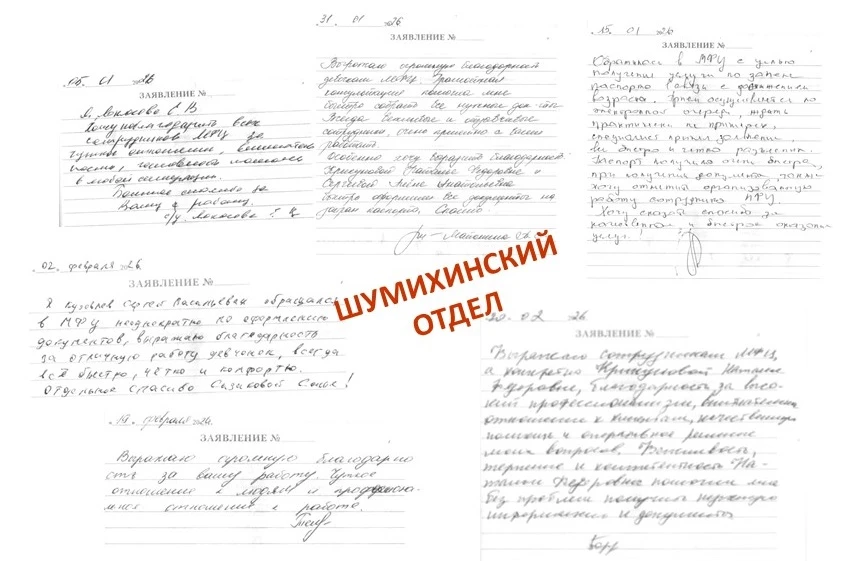 05. 01 26
ЗАЯВЛЕНИЕ №
Я, Локосова С. В.
Хочу поблагодарить всех
сотрудников МФЦ за
чуткое отношение,
в любой ситуации.
Большое спасибо за
Вашу работу.
31. 01 26
ЗАЯВЛЕНИЕ №
Выражаю огромную благодарность
девочкам МФЦ. Грамотная
консультация помогла мне
быстро собрать все нужные док-ты
Всегда вежливые и отзывчивые
сотрудники, очень приятно с вами
работать.
Особенно хочу выразить благодарность
Наталье Федоровне и
Сергеевой Анатольевне
быстро оформили все документы на
паспорта. Спасибо
15. 01 26
ЗАЯВЛЕНИЕ №
Обратился в МФЦ с целью
получения услуги по замене
паспорта в связи с достижением
возраста. Прием осуществляется по
электронной очереди, ждать
практически не пришлось,
специалист принял заявление
быстро и четко разъяснил.
Паспорт получил очень быстро,
при получении документа, также
хочу отметить организованную
работу сотрудников МФЦ.
Хочу сказать спасибо за
качественное и быстрое оказание
услуг!
02. февраля 26
ЗАЯВЛЕНИЕ №
Я Кузовлев Сергей Васильевич обращался
в МФЦ неоднократно по оформлению
документов, выражаю благодарность
за отличную работу девчонок, всегда
всё быстро, чётко и комфортно.
Отдельное спасибо Сизиковой Соне!
ШУМИХИНСКИЙ
ОТДЕЛ
19. февраля 26
ЗАЯВЛЕНИЕ №
Выражаю огромную благодарно
сть за вашу работу. Чуткое
отношение к людям и профессио-
нальное отношение к работе.
20. 02 26
ЗАЯВЛЕНИЕ №
Выражаю сотрудникам МФЦ,
а конкретно Наталье
Федоровне, благодарность за высо-
кий профессионализм, внимательное
отношение к клиентам, качественную
помощь и оперативное решение
моих вопросов. Вежливость,
терпение и компетентность На-
тальи Федоровны помогли мне
без проблем получить нужную
информацию и документы.